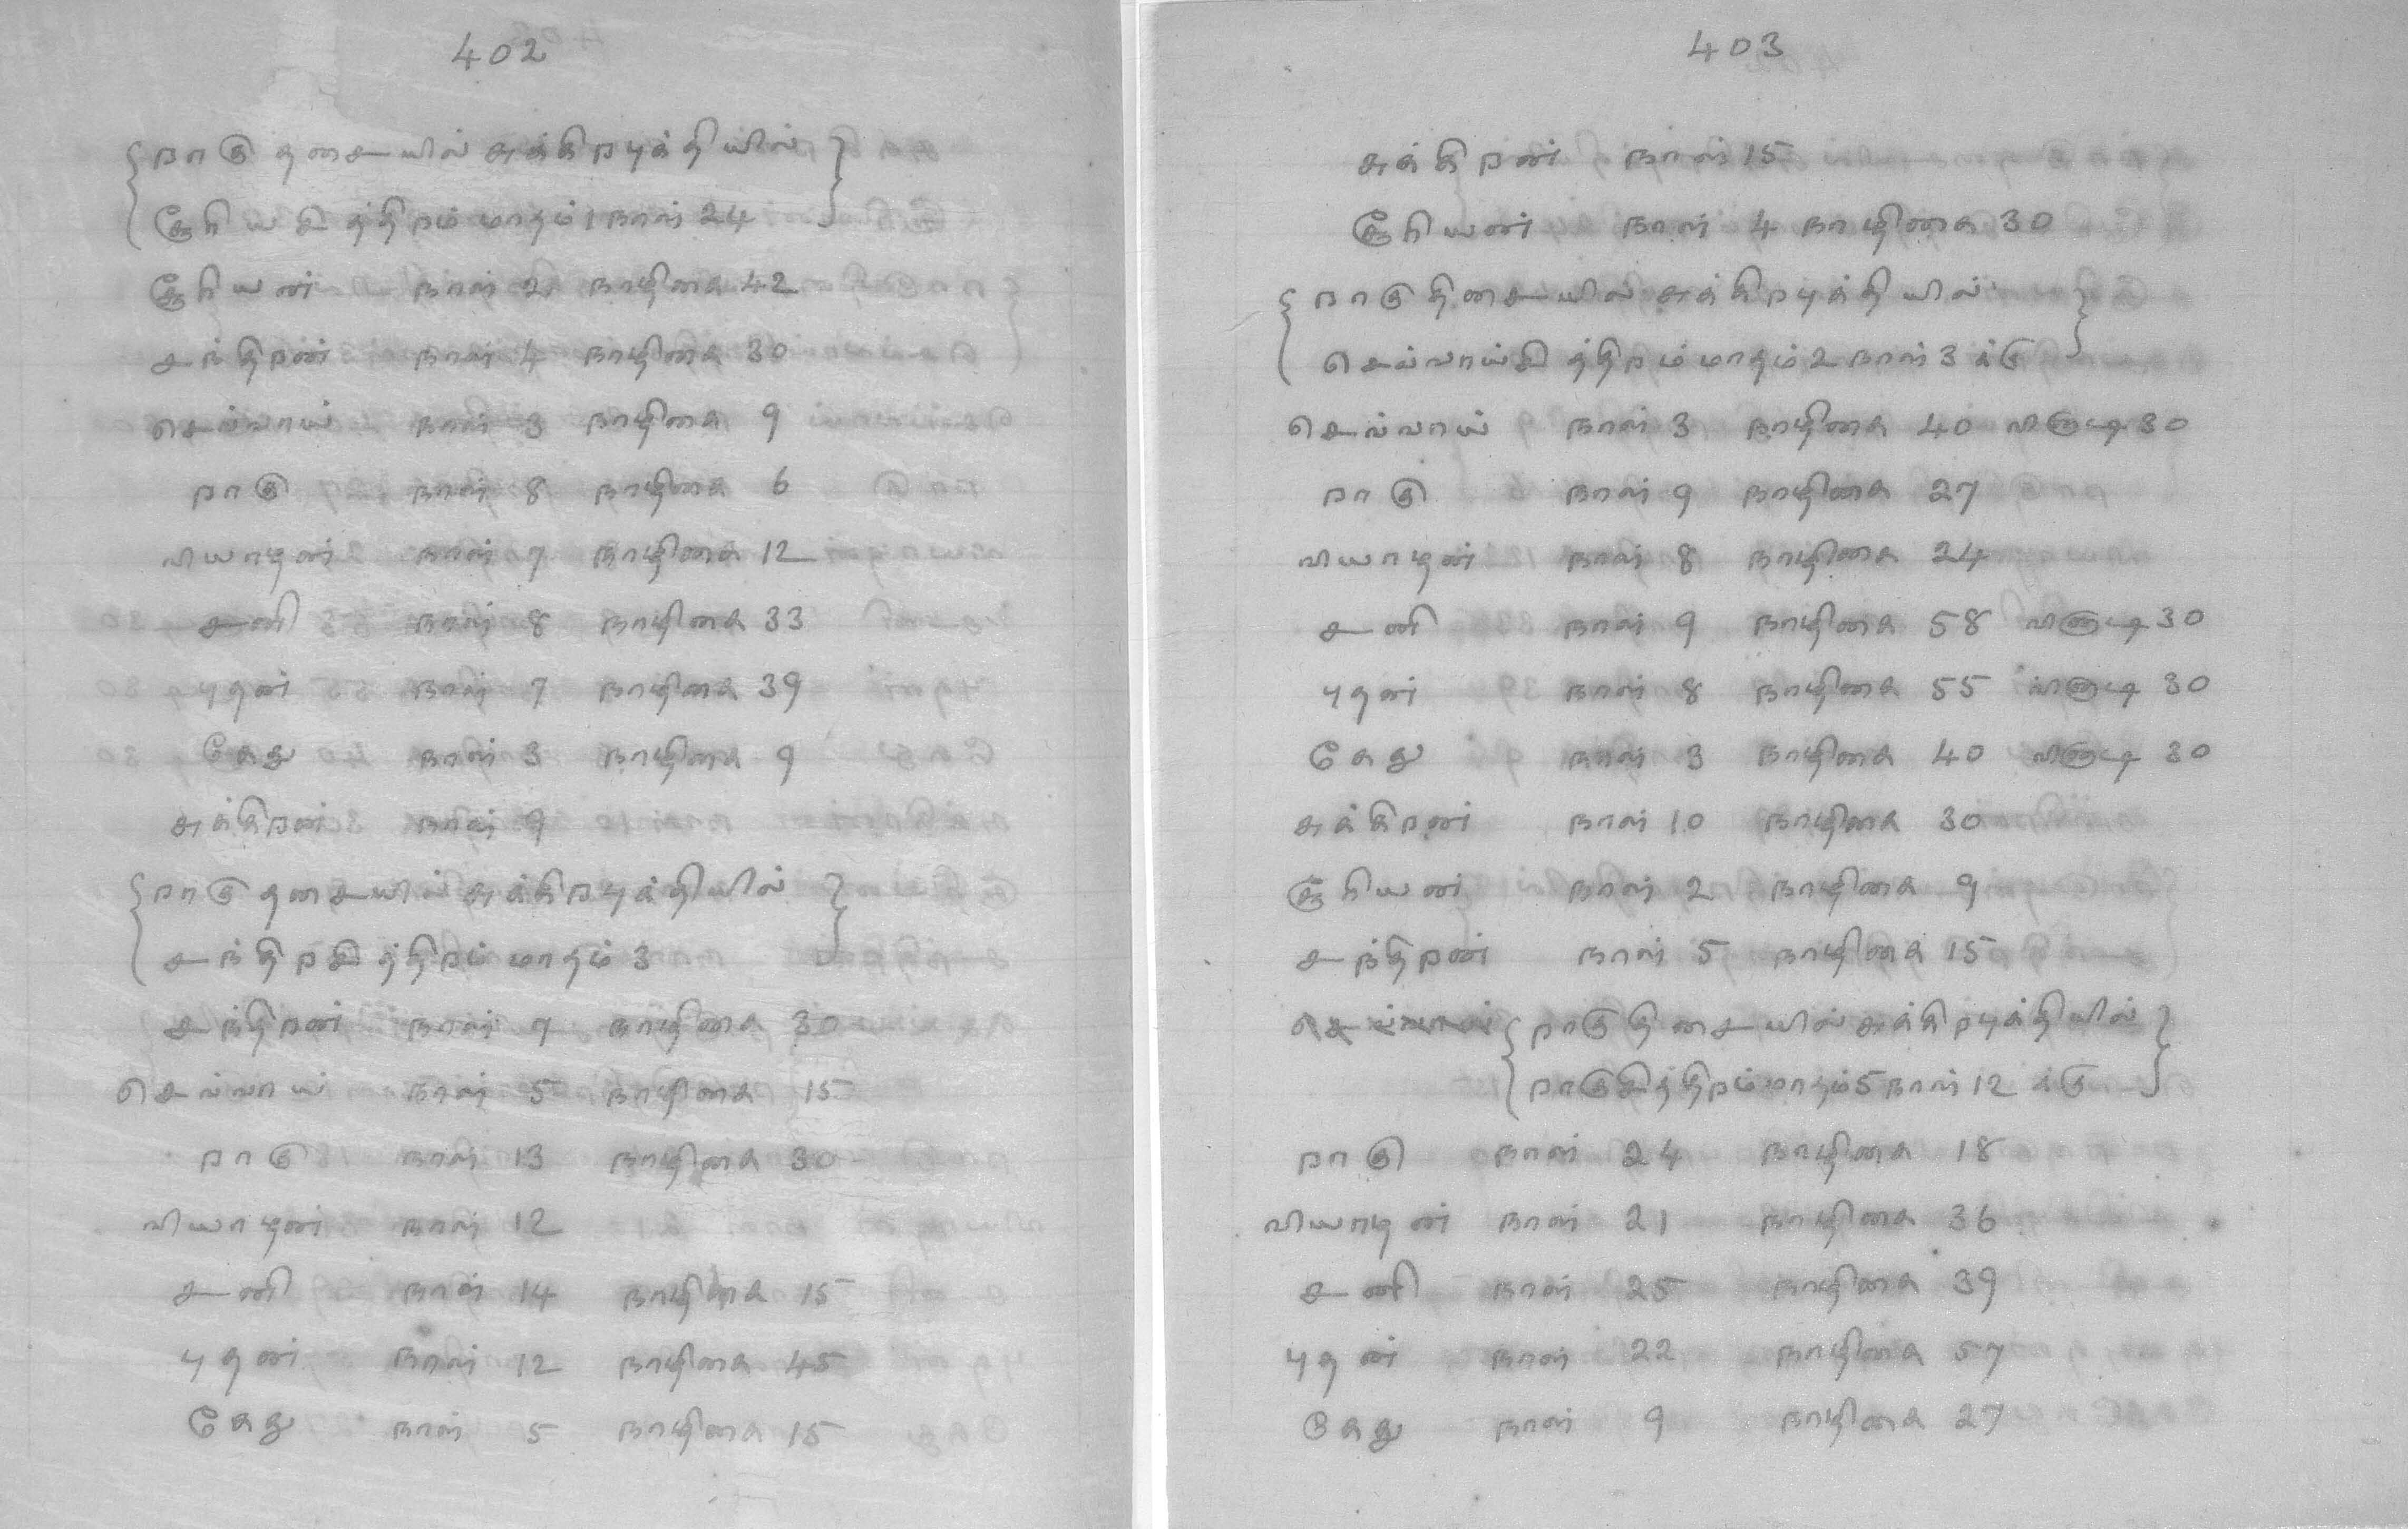 402
{ராகு தசையில் சுக்கிரபுத்தியில்}
{சூரியசித்திரம் மாதம் 1 நாள் 24}
சூரியன் நாள் 2 நாழிகை 42
சந்திரன் நாள் 4 நாழிகை 30
செவ்வாய் நாள் 3 நாழிகை 9
ராகு நாள் 8 நாழிகை 6
வியாழன் நாள் 7 நாழிகை 12
சனி நாள் 8 நாழிகை 33
புதன் நாள் 7 நாழிகை 39
கேது நாள் 3 நாழிகை 9
சுக்கிரன் நாள் 9
{ராகு தசையில் சுக்கிரபுத்தியில்}
{சந்திரசித்திரம் மாதம் 3}
சந்திரன் நாள் 7 நாழிகை 30
செவ்வாய் நாள் 5 நாழிகை 15
ராகு நாள் 13 நாழிகை 30
வியாழன் நாள் 12
சனி நாள் 14 நாழிகை 15
புதன் நாள் 12 நாழிகை 45
கேது நாள் 5 நாழிகை 15
403
சுக்கிரன் நாள் 15
சூரியன் நாள் 4 நாழிகை 30
{ராகு திசையில் சுக்கிரபுக்தியில்}
{செவ்வாய்சித்திரம் மாதம் 2 நாள் 3 க்கு}
செவ்வாய் நாள் 3 நாழிகை 40 விநாடி 30
ராகு நாள் 9 நாழிகை 27
வியாழன் நாள் 8 நாழிகை 24
சனி நாள் 9 நாழிகை 58 விநாடி 30
புதன் நாள் 8 நாழிகை 55 விநாடி 30
கேது நாள் 3 நாழிகை 40 விநாடி 30
சுக்கிரன் நாள் 10 நாழிகை 30
சூரியன் நாள் 2 நாழிகை 9
சந்திரன் நாள் 5 நாழிகை 15
{ராகு திசையில் சுக்கிரபுக்தியில்}
{ராகுசித்திரம் மாதம் 5 நாள் 12 க்கு}
ராகு நாள் 24 நாழிகை 18
வியாழன் நாள் 21 நாழிகை 36
சனி நாள் 25 நாழிகை 39
புதன் நாள் 22 நாழிகை 57
கேது நாள் 9 நாழிகை 27